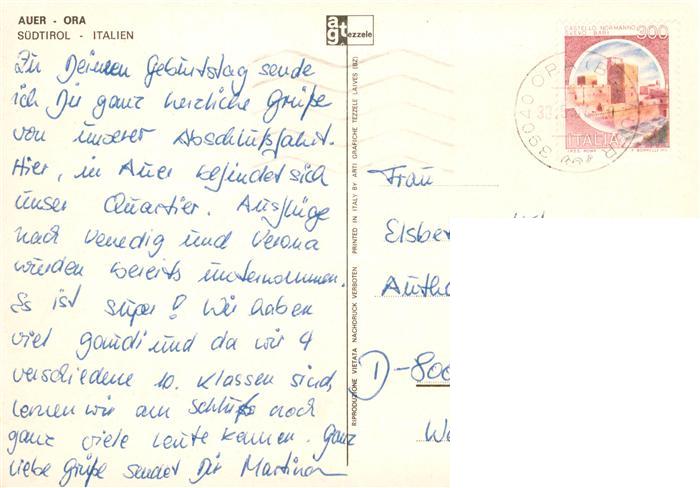 AUER - ORA
SÜDTIROL - ITALIEN
agt tezzele
Zu Deinem Geburtstag sende
ich Dir ganz herzliche Grüße
von unserer Abschlußfahrt.
Hier, in Auer befindet sich
unser Quartier. Ausflüge
nach Venedig und Verona
wurden bereits unternommen.
Es ist super! Wir haben
viel gaudi und da wir 4
verschiedene 10. Klassen sind,
lernen wir am Schluß noch
ganz viele Leute kennen. Ganz
liebe Grüße sendet Dir Martina
RIPRODUZIONE VIETATA NACHDRUCK VERBOTEN PRINTED IN ITALY BY ARTI GRAFICHE TEZZELE LAIVES (BZ)
CASTELLO NORMANNO
SVEVO BARI
300
ITALIA
39040 ORA
Frau
Elsbe
Auth
D-800
We